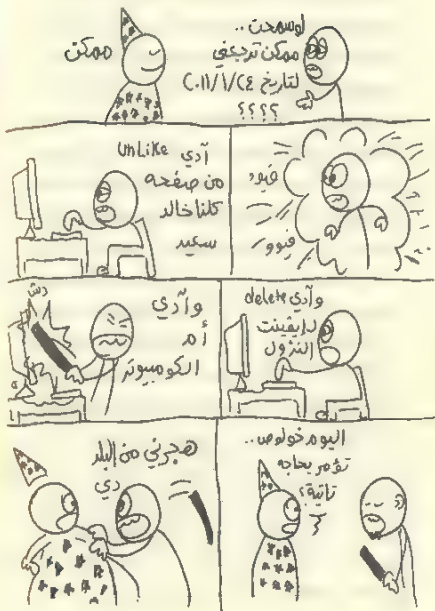 لوسمحت..
ممكن ترجعني
لتاريخ ٢٤/١/٢٠١١
؟؟؟؟
ممكن
فيوو
فيوو
آدي unLike
من صفحه
كلنا خالد
سعيد
وآدي delete
لإيفينت
النزول
وآدي
أم
الكومبيوتر
دش
اليوم خولوص..
تؤمر بحاجه
تانية؟
هجرني من البلد
دي